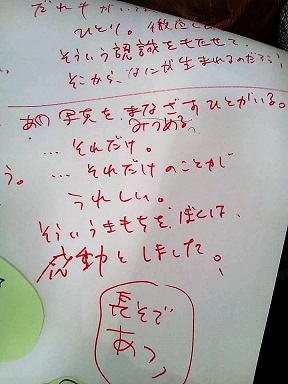 だれもがい
ひとり。
そういう認識をもたせて、
そこから、なにが生まれるのだろう
あの写真を、まなざすひとがいる。
みつめる。
… それだけ。
う。 … それだけのことが
うれしい。
そういうきもちを、ぼくは、
感動としました。
長そで
あつ、